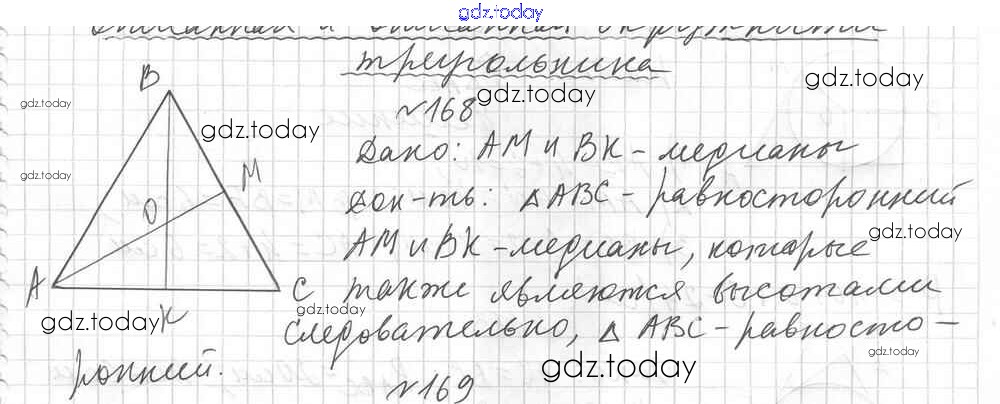 gdz.today
треугольника
gdz.today
gdz.today
№168
gdz.today
B
gdz.today
gdz.today
Дано: AM и BK - медианы
gdz.today
M
Док-ть: △ABC - равносторонний
O
AM и BK - медианы, которые
gdz.today
A
C также являются высотами
gdz.today
gdz.today K
следовательно, △ ABC - равносто -
ронний.
gdz.today
gdz.today
№169